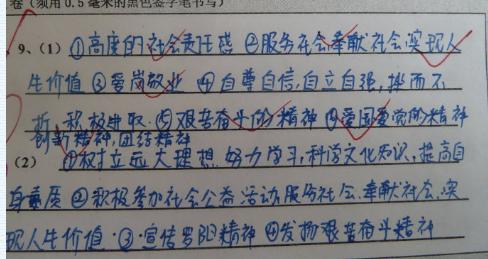 卷（须用0.5毫米的黑色签字笔书写）
9、(1) ①高度的社会责任感 ②服务社会奉献社会,实现人
生价值 ③爱岗敬业 ④自尊自信,自立自强,挫而不
折,积极进取.⑤艰苦奋斗的精神 ⑥爱国爱党的精神
创新精神,团结精神
(2) ①树立远大理想,努力学习,科学文化知识,提高自
身素质 ②积极参加社会公益活动,服务社会.奉献社会,实
现人生价值.③宣传罗阳精神 ④发扬艰苦奋斗精神